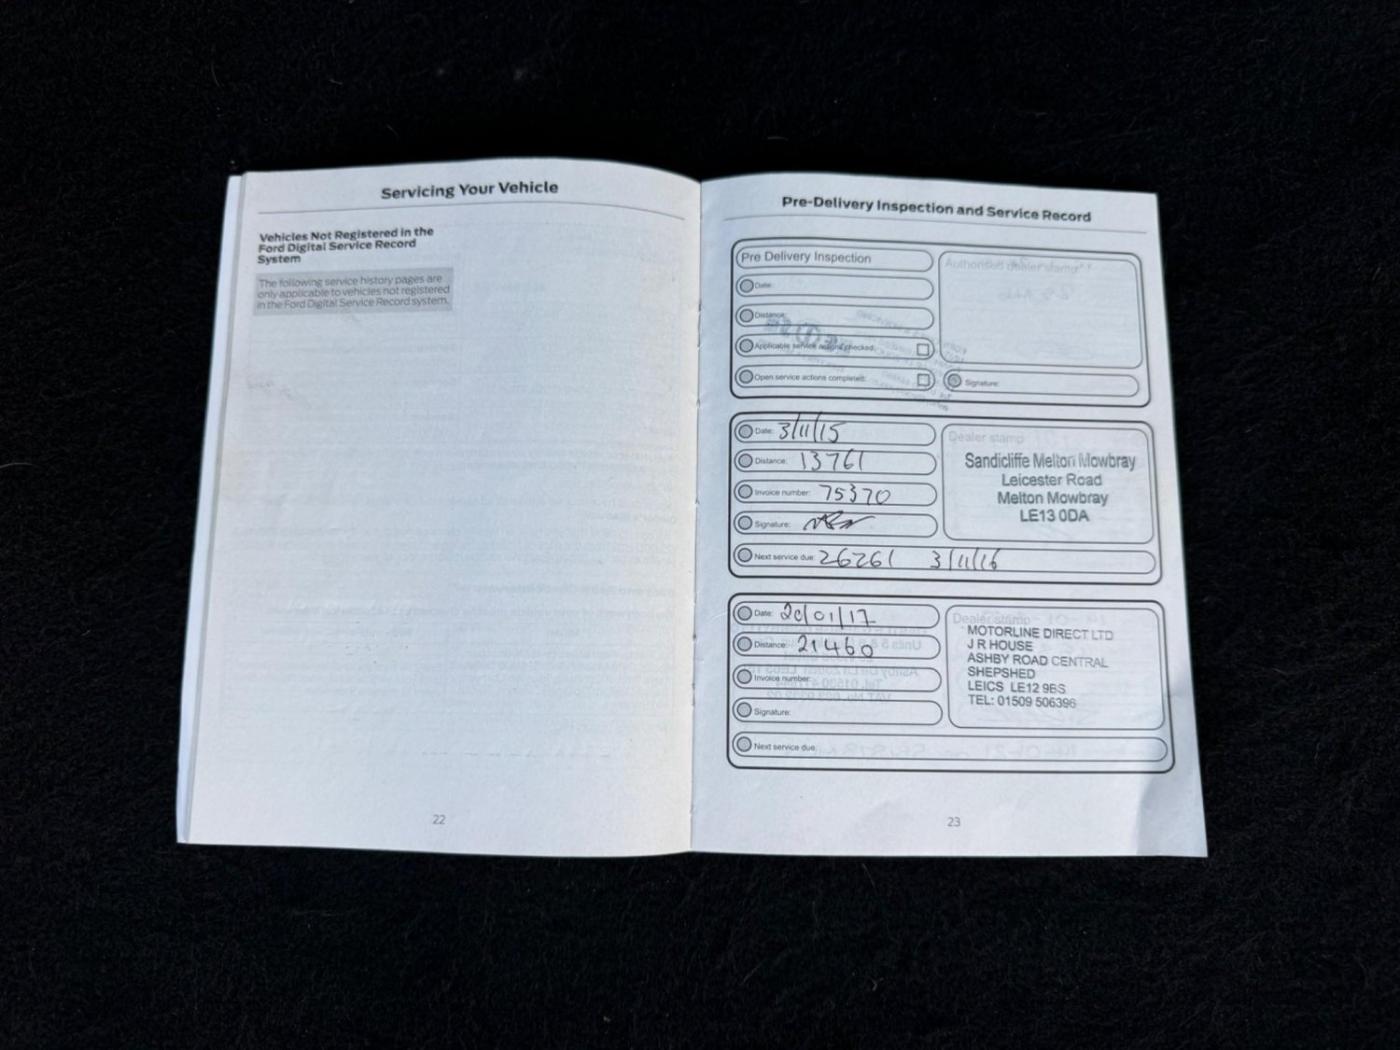 Servicing Your Vehicle
Vehicles Not Registered in the
Ford Digital Service Record
System
The following service history pages are
only applicable to vehicles not registered
in the Ford Digital Service Record system.
22
Pre-Delivery Inspection and Service Record
Pre Delivery Inspection
Date:
Distance:
Applicable service actions checked:
Open service actions completed:
Authorised dealer stamp
Signature:
Date: 3/11/15
Distance: 13761
Invoice number: 75370
Signature:
Next service due: 26261 3/11/16
Dealer stamp
Sandicliffe Melton Mowbray
Leicester Road
Melton Mowbray
LE13 0DA
Date: 20/01/17
Distance: 21460
Invoice number:
Signature:
Next service due:
Dealer stamp
MOTORLINE DIRECT LTD
J R HOUSE
ASHBY ROAD CENTRAL
SHEPSHED
LEICS LE12 9BS
TEL: 01509 506396
23